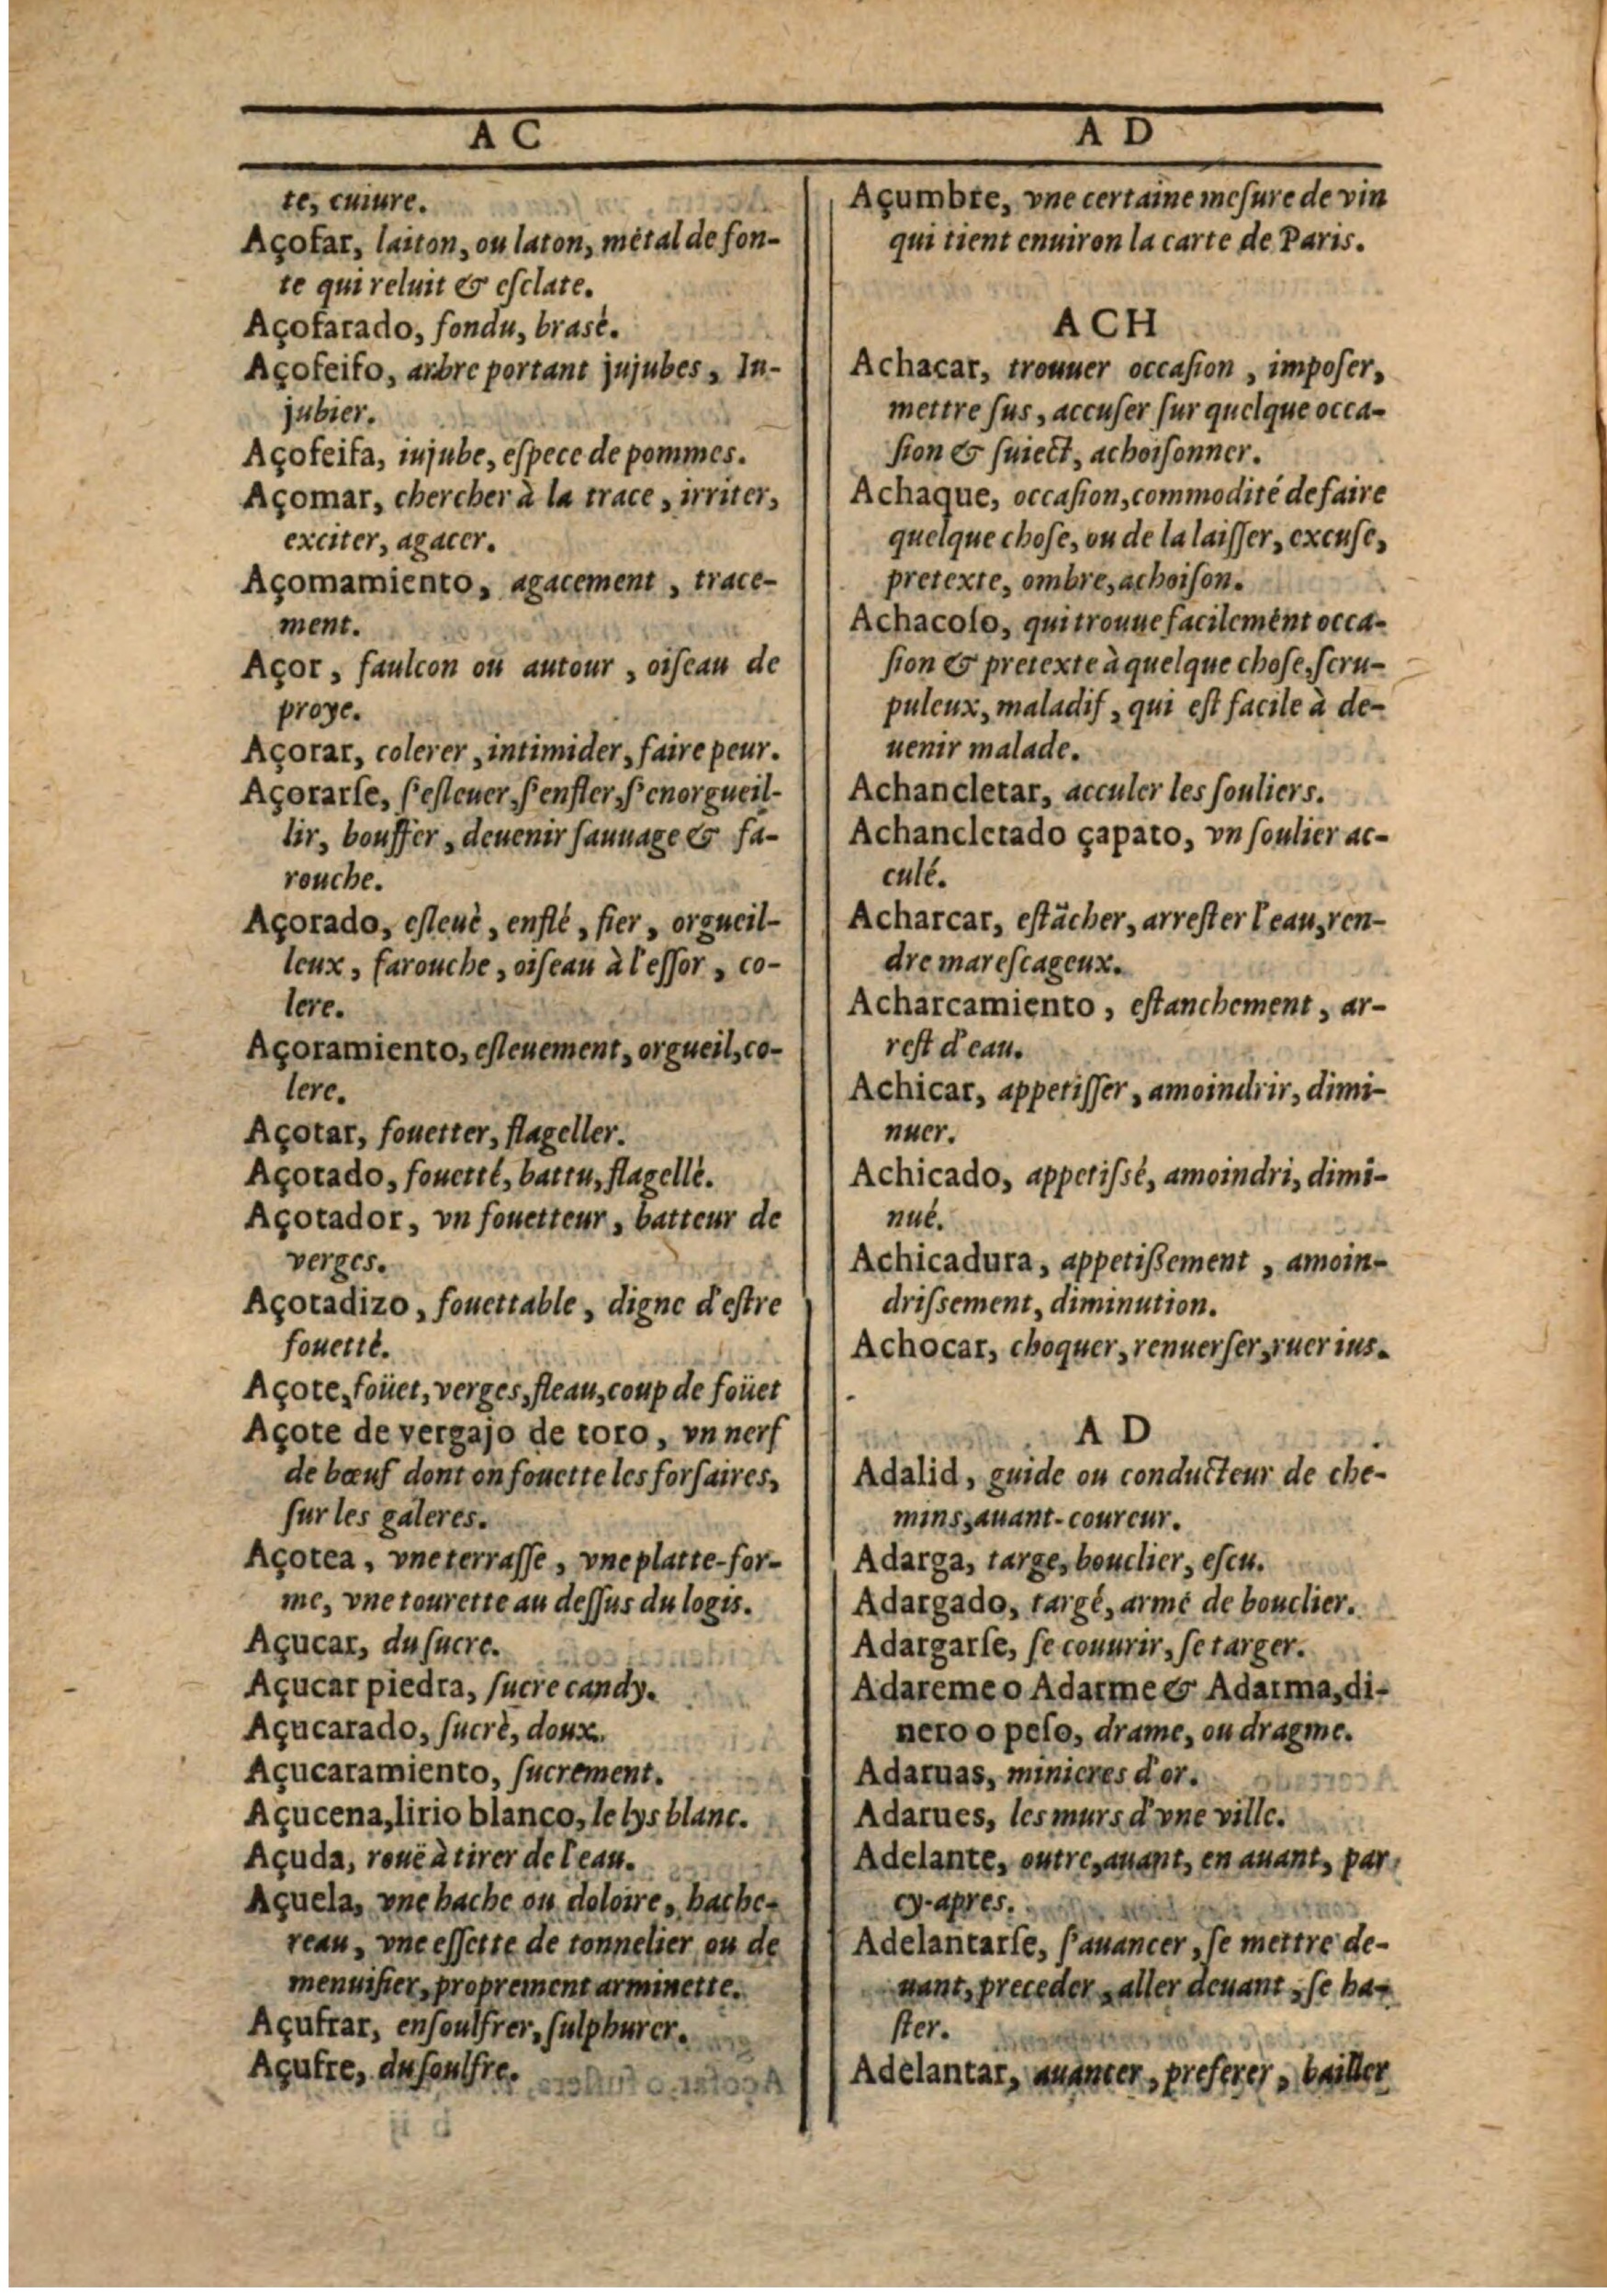 A C
te, cuiure.
Açofar, laiton, ou laton, métal de fon-
te qui reluit & eſclate.
Açofarado, fondu, brasè.
Açofeifo, arbre portant jujubes, Iu-
jubier.
Açofeifa, iujube, eſpece de pommes.
Açomar, chercher à la trace, irriter,
exciter, agacer.
Açomamiento, agacement, trace-
ment.
Açor, faulcon ou autour, oiſeau de
proye.
Açorar, colerer, intimider, faire peur.
Açorarſe, ſ'eſleuer, ſ'enfler, ſ'enorgueil-
lir, bouffer, deuenir ſauuage & fa-
rouche.
Açorado, eſleuè, enflé, fier, orgueil-
leux, farouche, oiſeau à l'eſſor, co-
lere.
Açoramiento, eſleuement, orgueil, co-
lere.
Açotar, fouetter, flageller.
Açotado, fouetté, battu, flagellè.
Açotador, vn fouetteur, batteur de
verges.
Açotadizo, fouettable, digne d'eſtre
fouettè.
Açote, foüet, verges, fleau, coup de foüet
Açote de vergajo de toro, vn nerf
de bœuf dont on fouette les forſaires,
ſur les galeres.
Açotea, vne terraſſe, vne platte-for-
me, vne tourette au deſſus du logis.
Açucar, du ſucre.
Açucar piedra, ſucre candy.
Açucarado, ſucrè, doux.
Açucaramiento, ſucrement.
Açucena, lirio blanco, le lys blanc.
Açuda, rouë à tirer de l'eau.
Açuela, vne hache ou doloire, hache-
reau, vne eſſette de tonnelier ou de
menuiſier, proprement arminette.
Açufrar, enſoulfrer, ſulphurer.
Açufre, du ſoulfre.
A D
Açumbre, vne certaine meſure de vin
qui tient enuiron la carte de Paris.
ACH
Achacar, trouuer occaſion, impoſer,
mettre ſus, accuſer ſur quelque occa-
ſion & ſuiect, achoiſonner.
Achaque, occaſion, commodité de faire
quelque choſe, ou de la laiſſer, excuſe,
pretexte, ombre, achoiſon.
Achacoſo, qui trouue facilement occa-
ſion & pretexte à quelque choſe, ſcru-
puleux, maladif, qui eſt facile à de-
uenir malade.
Achancletar, acculer les ſouliers.
Achancletado çapato, vn ſoulier ac-
culé.
Acharcar, eſtãcher, arreſter l'eau, ren-
dre mareſcageux.
Acharcamiento, eſtanchement, ar-
reſt d'eau.
Achicar, appetiſſer, amoindrir, dimi-
nuer.
Achicado, appetiſsé, amoindri, dimi-
nué.
Achicadura, appetiſsement, amoin-
driſsement, diminution.
Achocar, choquer, renuerſer, ruer ius.
A D
Adalid, guide ou conducteur de che-
mins, auant-coureur.
Adarga, targe, bouclier, eſcu.
Adargado, targé, armé de bouclier.
Adargarſe, ſe couurir, ſe targer.
Adareme o Adarme & Adarma, di-
nero o peſo, drame, ou dragme.
Adaruas, minieres d'or.
Adarues, les murs d'vne ville.
Adelante, outre, auant, en auant, par
cy-apres.
Adelantarſe, ſ'auancer, ſe mettre de-
uant, preceder, aller deuant, ſe ha-
ſter.
Adelantar, auancer, preferer, bailler